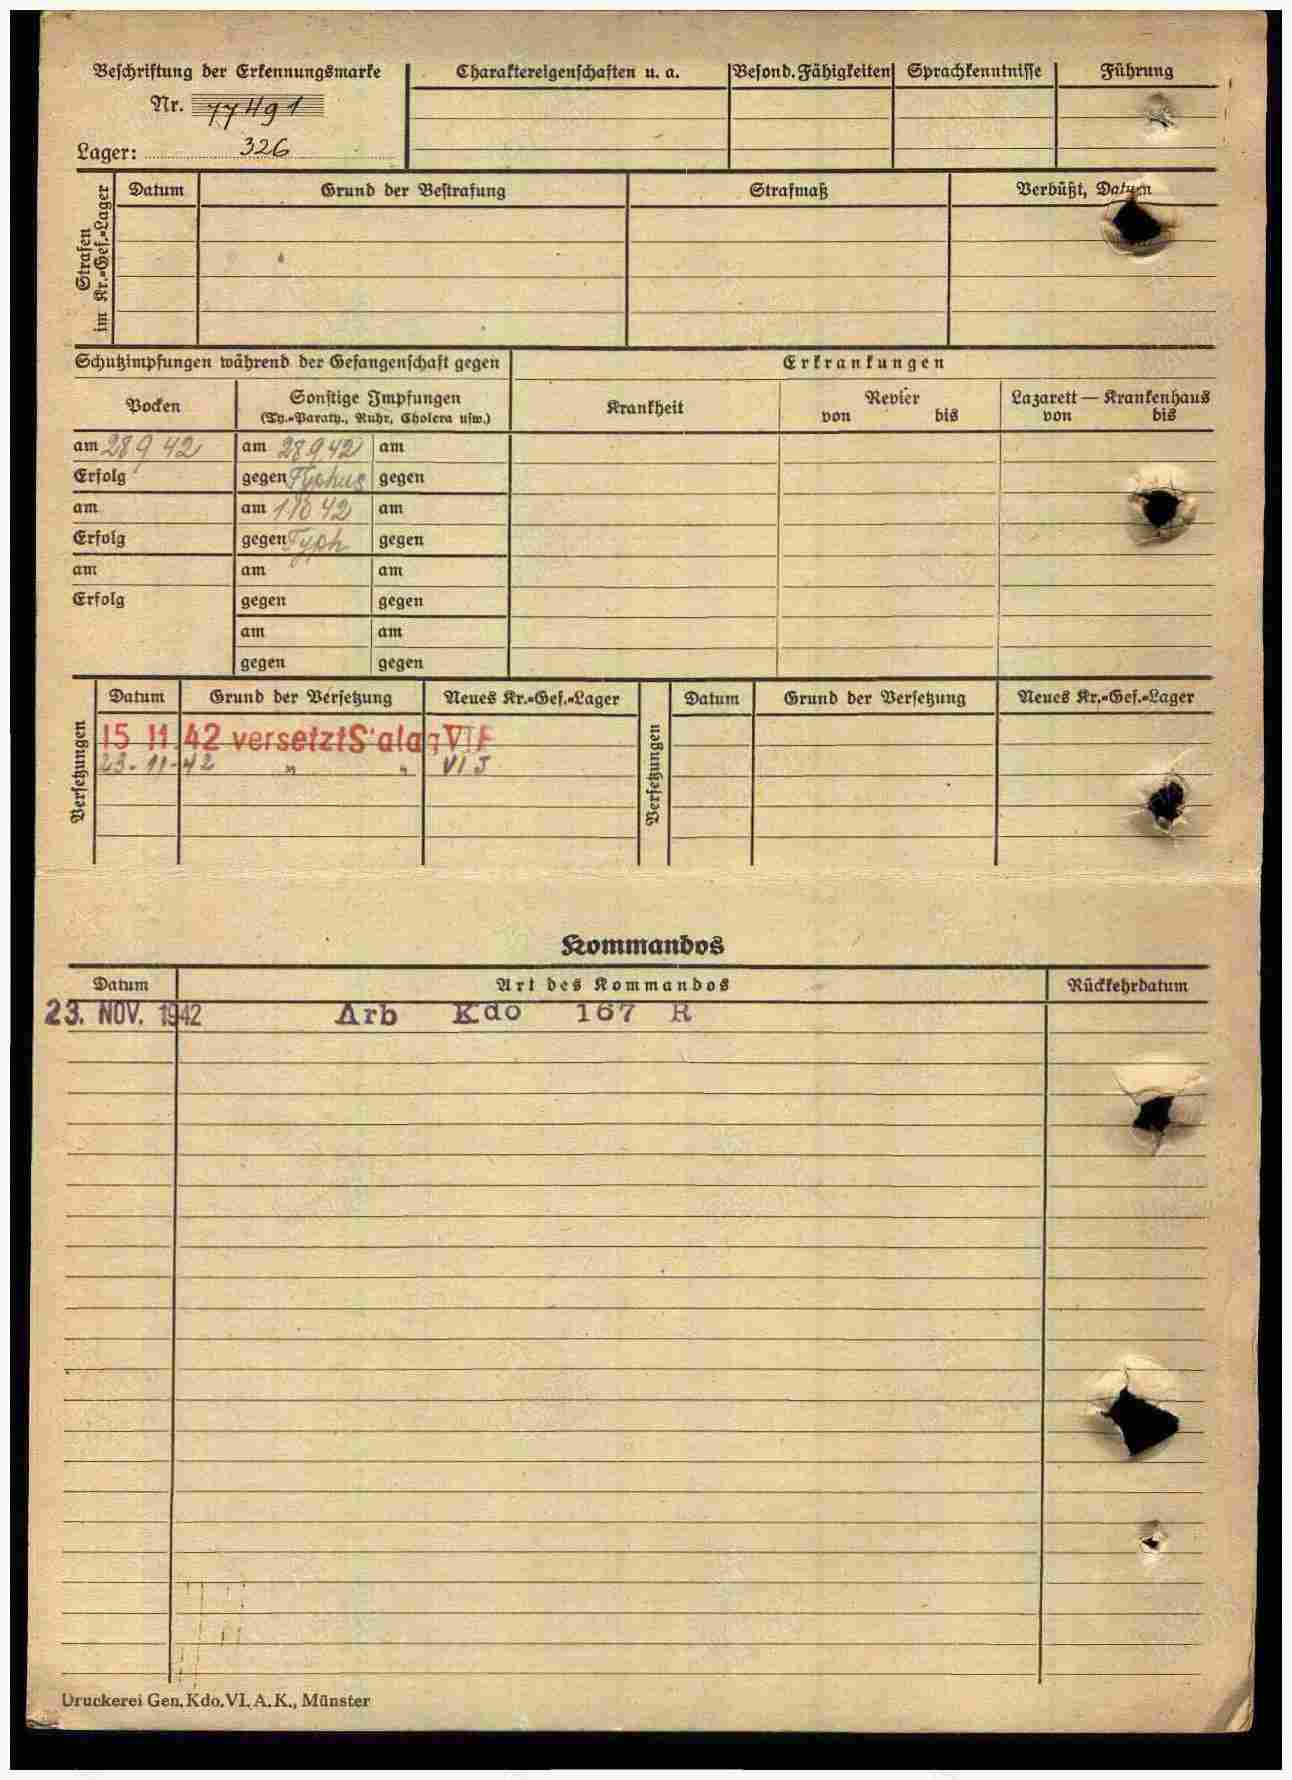 Beschriftung der Erkennungsmarke
Nr. 77491
Lager: 326
Charaktereigenschaften u. a.
Besond. Fähigkeiten
Sprachkenntnisse
Führung
Strafen im Kr.=Gef.=Lager
Datum
Grund der Bestrafung
Strafmaß
Verbüßt, Datum
Schutzimpfungen während der Gefangenschaft gegen
Erkrankungen
Pocken
Sonstige Impfungen
(Ty.=Paraty., Ruhr, Cholera usw.)
Krankheit
Revier
von bis
Lazarett — Krankenhaus
von bis
am 28 9 42 am 28 9 42 am
Erfolg gegen Typhus gegen
am am 1 10 42 am
Erfolg gegen Typh gegen
am am am
Erfolg gegen gegen
am am
gegen gegen
Versetzungen
Datum Grund der Versetzung Neues Kr.=Gef.=Lager
15 11. 42 versetzt S'alag VI F
23. 11. 42 " " VI J
Versetzungen
Datum Grund der Versetzung Neues Kr.=Gef.=Lager
Kommandos
Datum Art des Kommandos Rückkehrdatum
23. NOV. 1942 Arb Kdo 167 R
Druckerei Gen. Kdo. VI. A. K., Münster